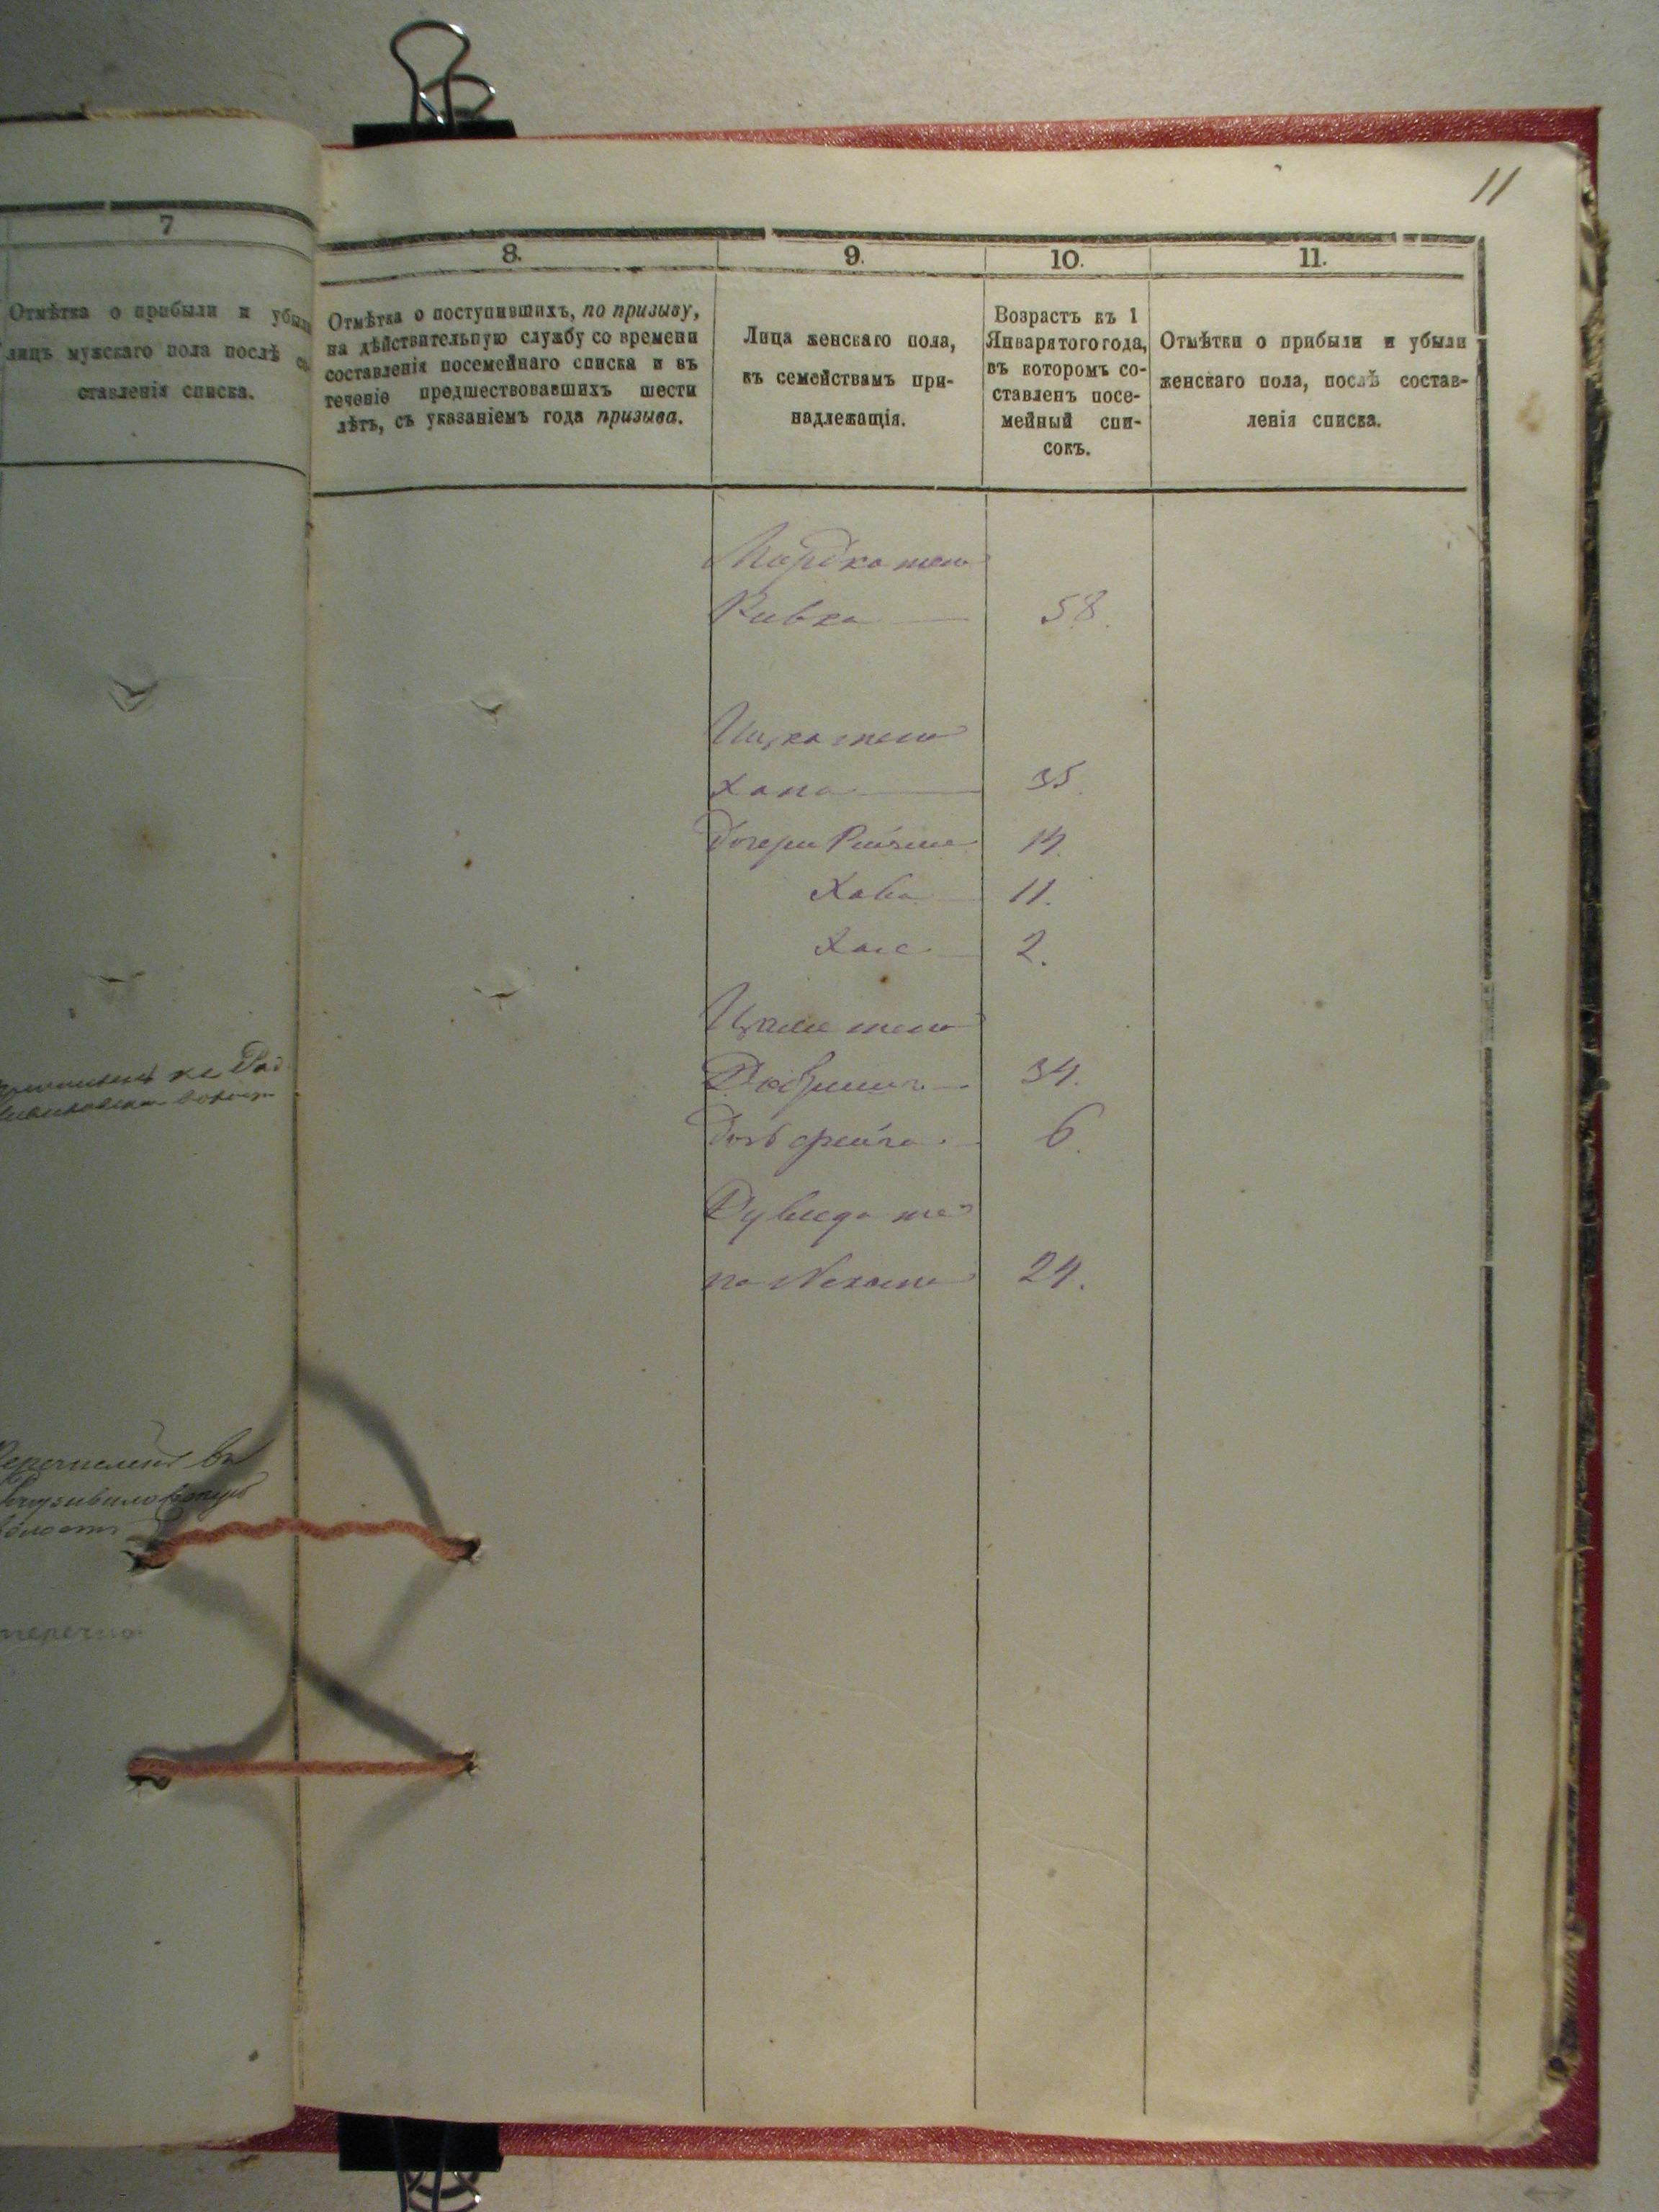 11
7
Отмѣтка о прибыли и убыли
лицъ мужскаго пола послѣ со
ставленія списка.
8.
Отмѣтка о поступившихъ, по призыву,
на дѣйствительную службу со времени
составленія посемейнаго списка и въ
теченіе предшествовавшихъ шести
лѣтъ, съ указаніемъ года призыва.
9.
Лица женскаго пола,
къ семействамъ при-
надлежащія.
10.
Возрастъ къ 1
Января того года,
въ которомъ со-
ставленъ посе-
мейный спи-
сокъ.
11.
Отмѣтки о прибыли и убыли
женскаго пола, послѣ состав-
ленія списка.
Мордка жена
Ривка 58.
Ицка жена
Хана 35.
Дочери 14.
Хава 11.
Хая 2.
жена
34.
Дочь Фейга 6.
же
на Нехама 24.
Перечисленъ въ
волость
перечис